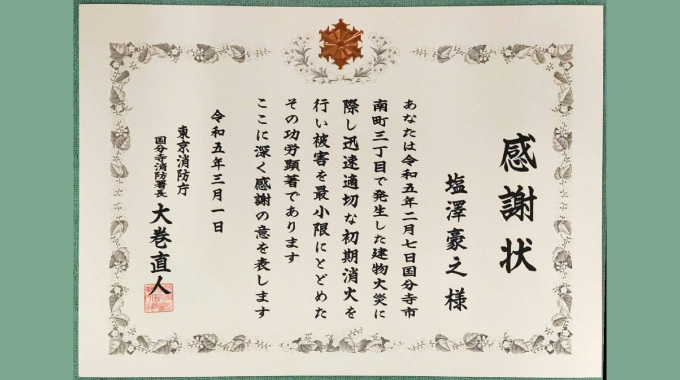 感謝状
塩澤豪之様
あなたは令和五年二月七日国分寺市
南町三丁目で発生した建物火災に
際し迅速適切な初期消火を
行い被害を最小限にとどめた
その功労顕著であります
ここに深く感謝の意を表します
令和五年三月一日
東京消防庁
国分寺消防署長 大巻直人